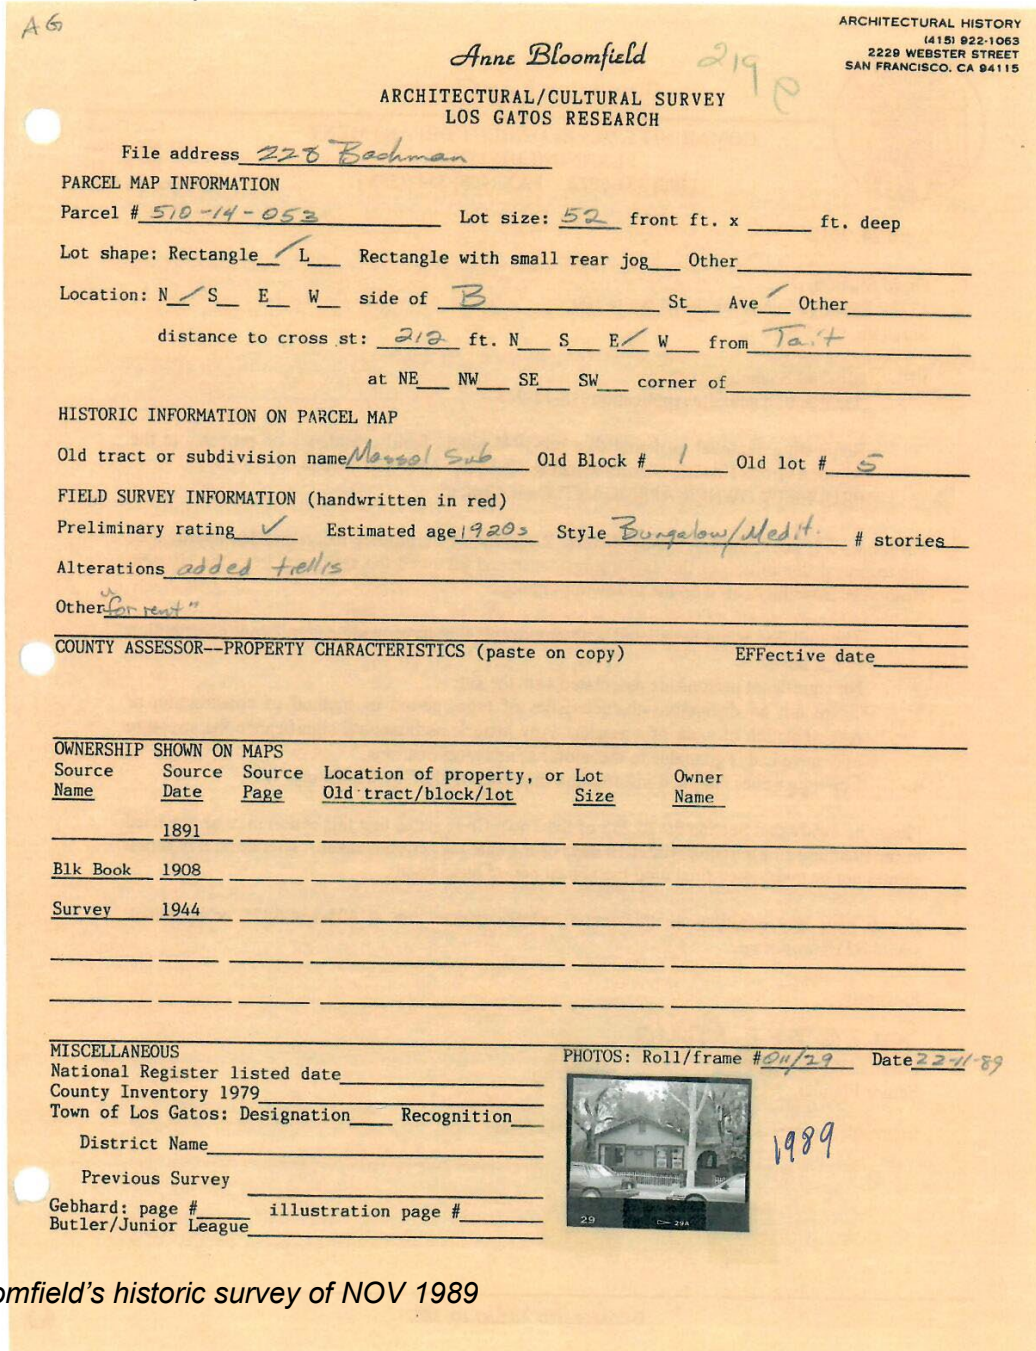 AG
ARCHITECTURAL HISTORY
(415) 922-1063
2229 WEBSTER STREET
SAN FRANCISCO, CA 94115
Anne Bloomfield
219
ARCHITECTURAL/CULTURAL SURVEY
LOS GATOS RESEARCH
File address 228 Bachman
PARCEL MAP INFORMATION
Parcel # 510-14-053 Lot size: 52 front ft. x ft. deep
Lot shape: Rectangle ✓ L Rectangle with small rear jog Other
Location: N ✓ S E W side of B St Ave ✓ Other
distance to cross st: 212 ft. N S E ✓ W from Tait
at NE NW SE SW corner of
HISTORIC INFORMATION ON PARCEL MAP
Old tract or subdivision name Massol Sub Old Block # 1 Old lot # 5
FIELD SURVEY INFORMATION (handwritten in red)
Preliminary rating ✓ Estimated age 1920s Style Bungalow/Medit. # stories
Alterations added trellis
Other "for rent"
COUNTY ASSESSOR--PROPERTY CHARACTERISTICS (paste on copy) EFFective date
OWNERSHIP SHOWN ON MAPS
Source Source Source Location of property, or Lot Owner
Name Date Page Old tract/block/lot Size Name
1891
Blk Book 1908
Survey 1944
MISCELLANEOUS PHOTOS: Roll/frame # 011/29 Date 22-11-89
National Register listed date
County Inventory 1979
Town of Los Gatos: Designation Recognition
District Name
1989
Previous Survey
Gebhard: page # illustration page #
Butler/Junior League
29 29A
omfield's historic survey of NOV 1989